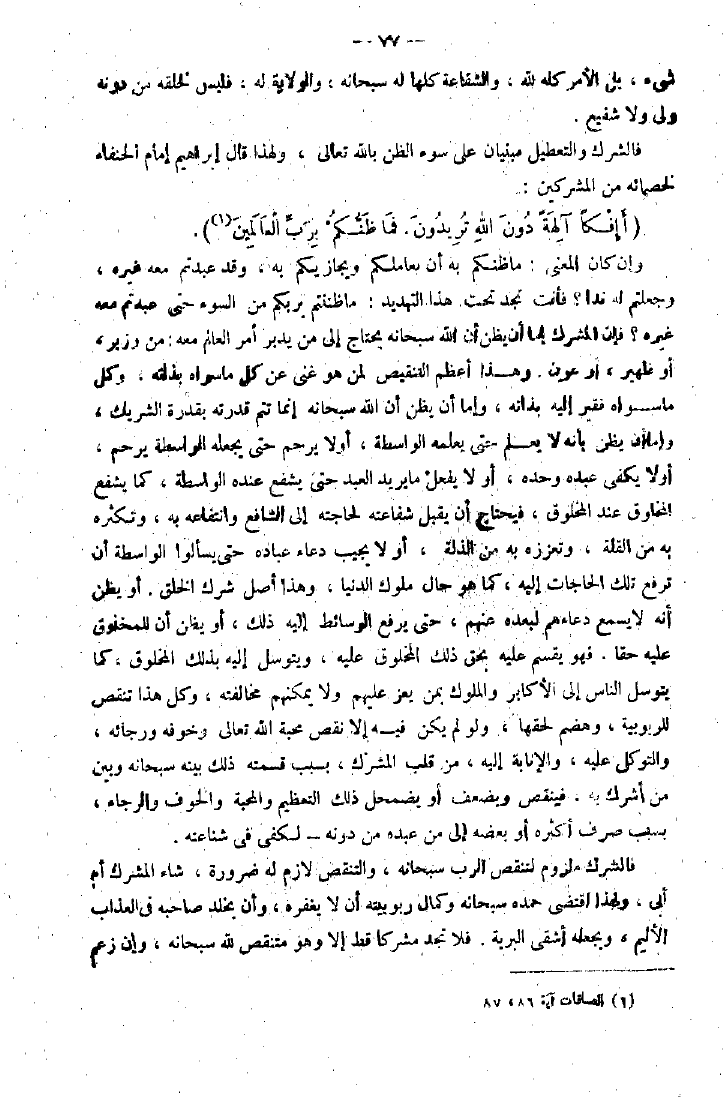 — ٧٧ —
شيء ، بل الأمر كله لله ، والشفاعة كلها له سبحانه ، والولاية له ، فليس لخلقه من دونه
ولى ولا شفيع .
فالشرك والتعطيل مبنيان على سوء الظن بالله تعالى ، ولهذا قال إبراهيم إمام الحنفاء
لخصمائه من المشركين :
( أَإِفْكاً آلِهَةً دُونَ اللهِ تُرِيدُونَ . فَمَا ظَنُّكُمْ بِرَبِّ الْعَالَمِينَ(١)) .
وإن كان المعنى : ماظنكم به أن يعاملكم ويجازيكم به ، وقد عبدتم معه غيره ،
وجعلتم له ندا ؟ فأنت تجد تحت هذا التهديد : ماظننتم بربكم من السوء حتى عبدتم معه
غيره ؟ فإن المشرك إما أن يظن أن الله سبحانه يحتاج إلى من يدبر أمر العالم معه : من وزير ،
أو ظهير ، أو عون . وهـذا أعظم التنقيص لمن هو غنى عن كل ماسواه بذاته ، وكل
ماسـواه فقير إليه بذاته ، وإما أن يظن أن الله سبحانه إنما تتم قدرته بقدرة الشريك ،
وإما أن يظن بأنه لا يعـلم حتى يعلمه الواسطة ، أولا يرحم حتى يجعله الواسطة يرحم ،
أولا يكفى عبده وحده ، أو لا يفعل مايريد العبد حتى يشفع عنده الواسطة ، كما يشفع
المخلوق عند المخلوق ، فيحتاج أن يقبل شفاعته لحاجته إلى الشافع وانتفاعه به ، وتكثره
به من القلة ، وتعززه به من الذلة ، أو لا يجيب دعاء عباده حتى يسألوا الواسطة أن
ترفع تلك الحاجات إليه ، كما هو حال ملوك الدنيا ، وهذا أصل شرك الخلق . أو يظن
أنه لايسمع دعاءهم لبعده عنهم ، حتى يرفع الوسائط إليه ذلك ، أو يظن أن للمخلوق
عليه حقا . فهو يقسم عليه بحق ذلك المخلوق عليه ، ويتوسل إليه بذلك المخلوق ، كما
يتوسل الناس إلى الأكابر والملوك بمن يعز عليهم ولا يمكنهم مخالفته ، وكل هذا تنقص
للربوبية ، وهضم لحقها ، ولو لم يكن فيـه إلا نقص محبة الله تعالى وخوفه ورجائه ،
والتوكل عليه ، والإنابة إليه ، من قلب المشرك ، بسبب قسمته ذلك بينه سبحانه وبين
من أشرك به . فينقص ويضعف أو يضمحل ذلك التعظيم والمحبة والخوف والرجاء ،
بسبب صرف أكثره أو بعضه إلى من عبده من دونه – لـكفى فى شناعته .
فالشرك ملزوم لتنقص الرب سبحانه ، والتنقص لازم له ضرورة ، شاء المشرك أم
أبى ، ولهذا اقتضى حمده سبحانه وكمال ربوبيته أن لا يغفره ، وأن يخلد صاحبه فى العذاب
الأليم ، ويجعله أشقى البرية . فلا تجد مشركا قط إلا وهو متنقص لله سبحانه ، وإن زعم
(١) الصافات آية ٨٦ ، ٨٧